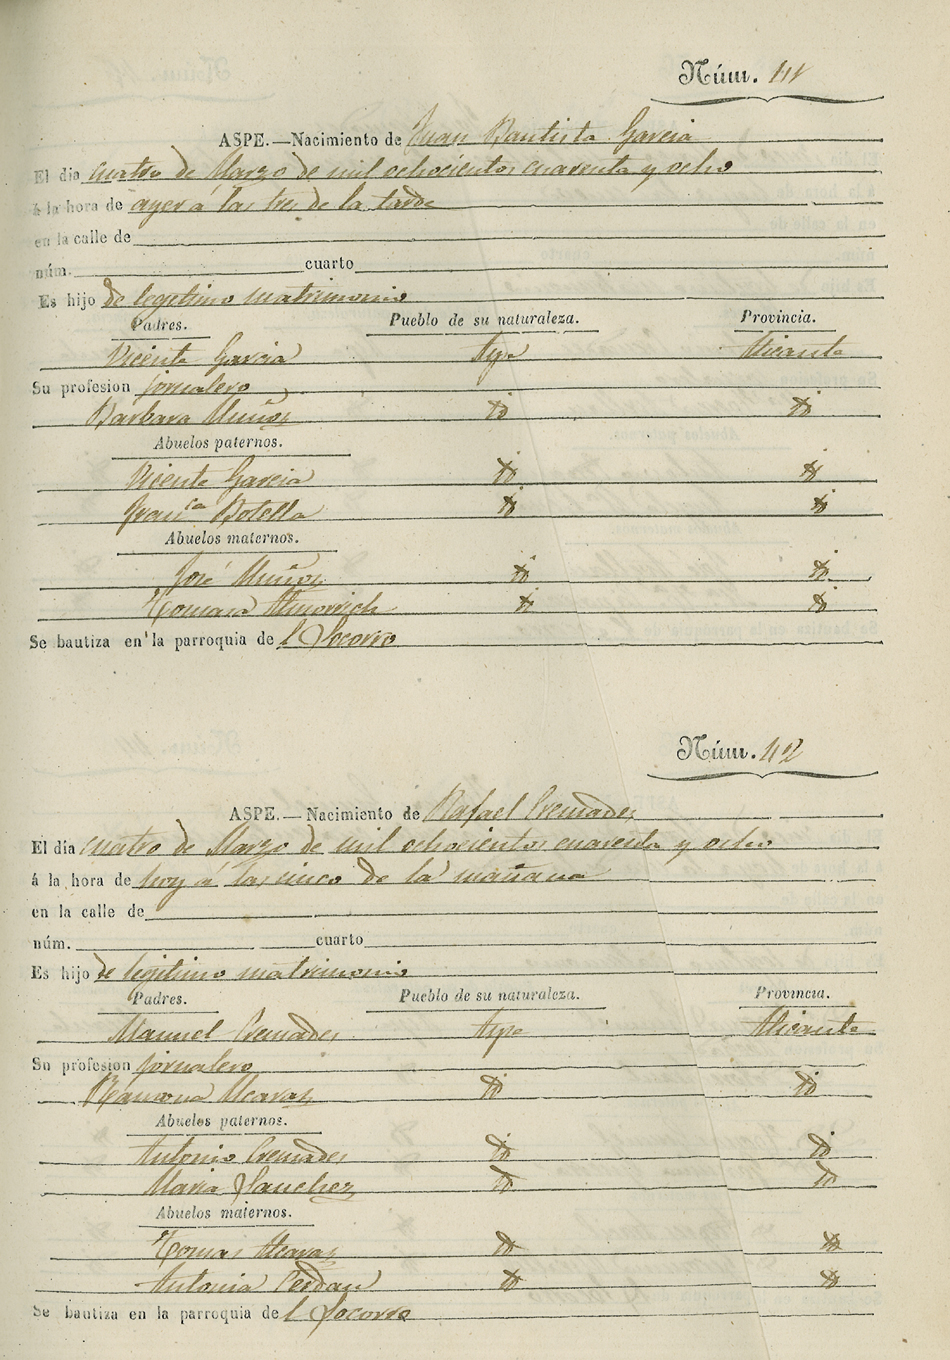 Núm. 41
ASPE.—Nacimiento de Juan Bautista Garcia
El dia cuatro de Marzo de mil ochocientos cuarenta y ocho
á la hora de ayer á las tres de la tarde
en la calle de
núm. cuarto
Es hijo de legitimo matrimonio
Padres. Pueblo de su naturaleza. Provincia.
Vicente Garcia Aspe Alicante
Su profesion jornalero
Barbara Muñoz id id
Abuelos paternos.
Vicente Garcia id id
Franca Botella id id
Abuelos maternos.
José Muñoz id id
Tomasa Almorrich id id
Se bautiza en la parroquia del Socorro
Núm. 42
ASPE.—Nacimiento de Rafael Cremades
El día cuatro de Marzo de mil ochocientos cuarenta y ocho
á la hora de hoy á las cinco de la mañana
en la calle de
núm. cuarto
Es hijo de legitimo matrimonio
Padres. Pueblo de su naturaleza. Provincia.
Manuel Cremades Aspe Alicante
Su profesion jornalero
Ramona Alcaraz id id
Abuelos paternos.
Antonio Cremades id id
Maria Sanchez id id
Abuelos maternos.
Tomas Alcaraz id id
Antonia Cerdan id id
Se bautiza en la parroquia del Socorro